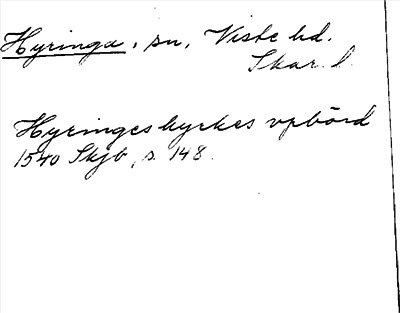 Hyringa, sn, Viste hd.
Skar. l.
Hyringes kyrkes vpbörd
1540 Skjb, s. 148.